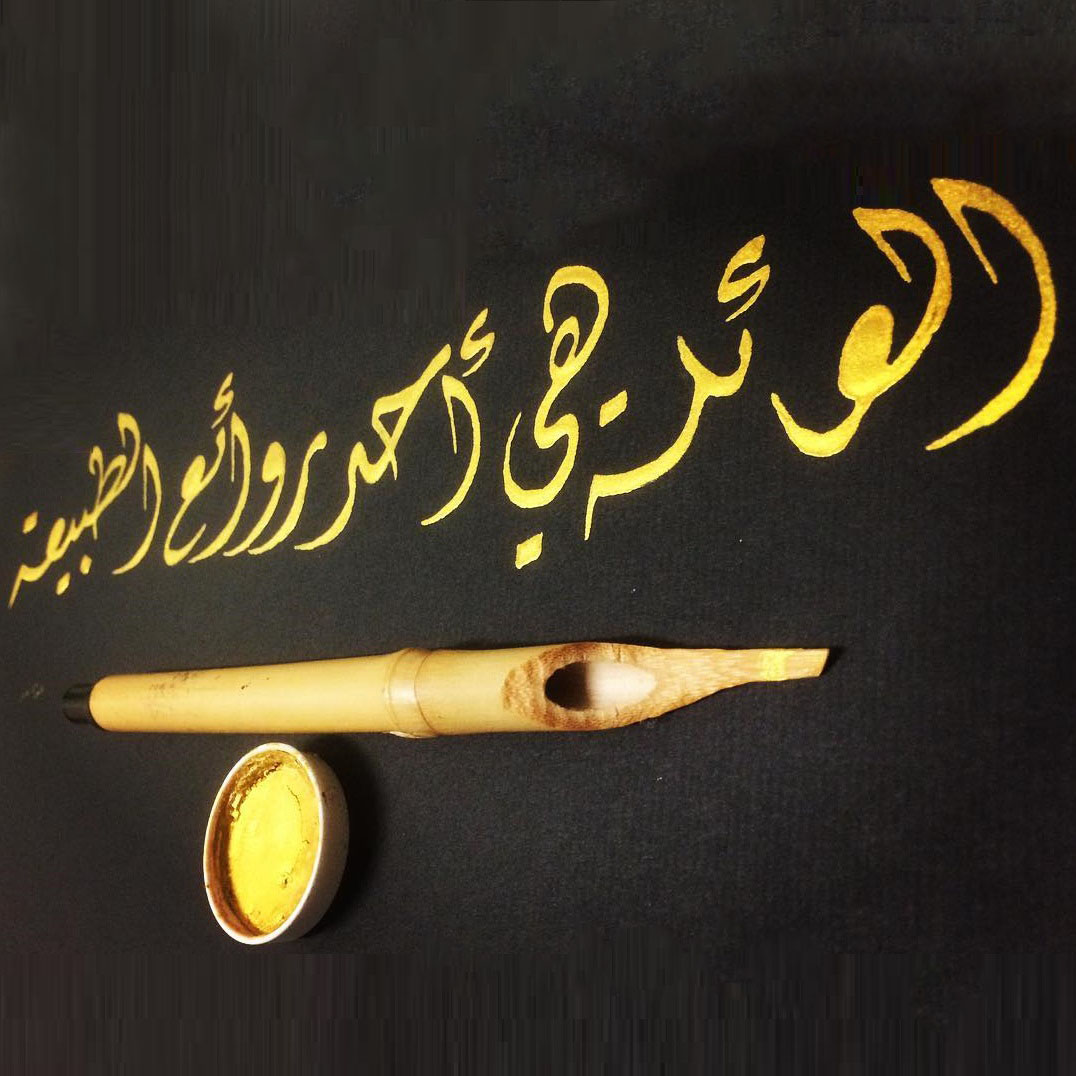 العائلة هي أحد روائع الطبيعة